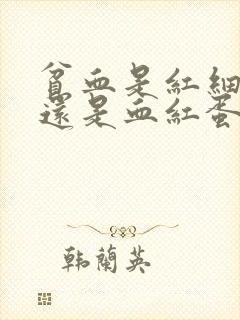 貧血是紅細
還是血紅蛋
韩蘭英